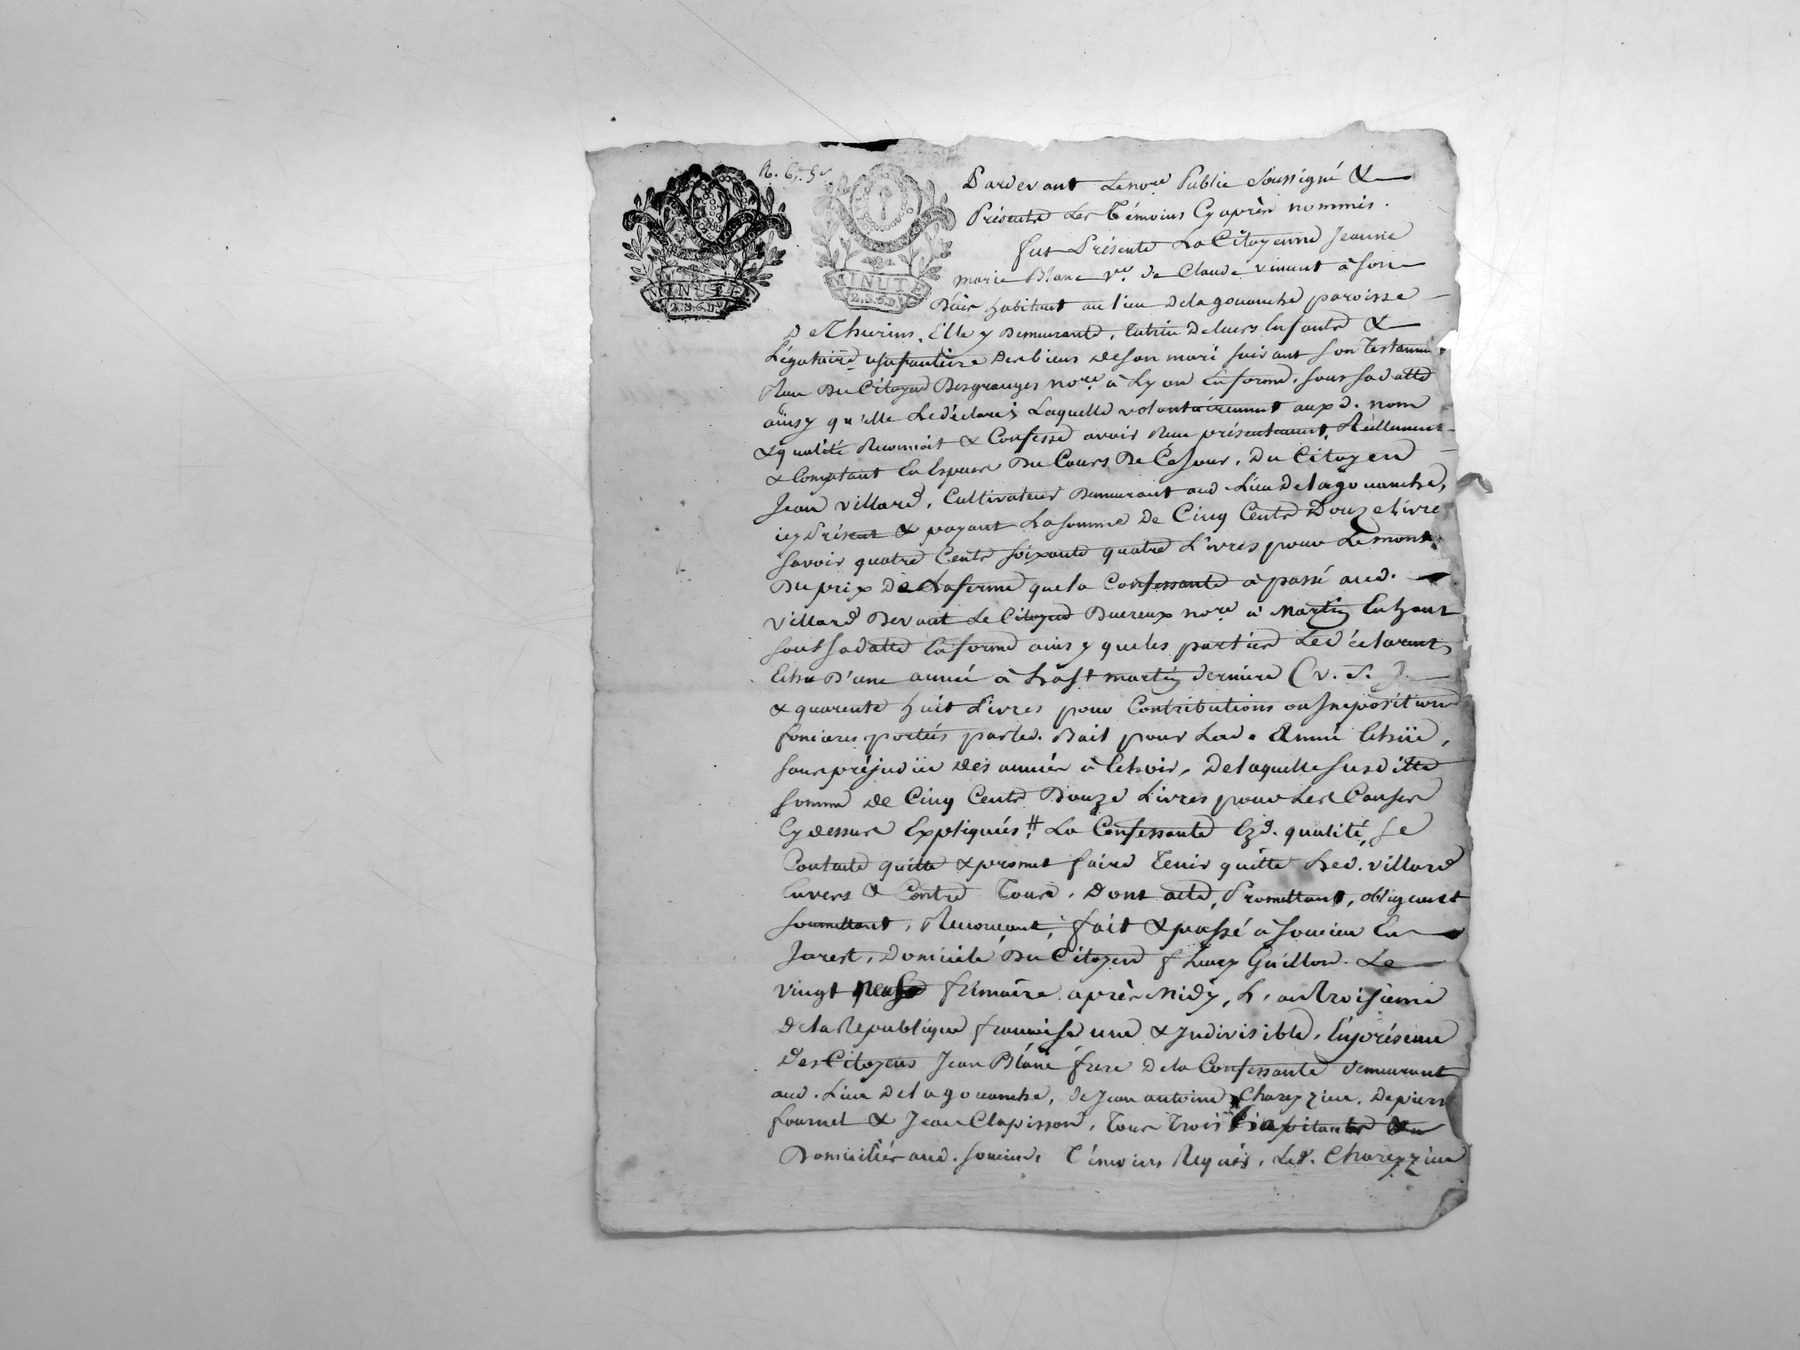 R. 6. 5s
MINUTE
2. S. 6. D.
MINUTE
2. S. 6. D.
Pardevant Le nore Public Soussigné &
Présents Les Témoins Cy après nommés.
fut Présente La Citoyenne Jeanne
marie Blanc Ve. de Claude vinent à Son
Décès habitant au lieu de la gouanche paroisse
De Thurins, Elle y Demeurante, tutrice De leurs Enfants &
Légataire usufruitière Des biens de Son mari Suivant Son Testament
Reçu Du Citoyen Desgranges nore. à Lyon En forme, Sous Sa datte
ainsy qu'elle Le déclare; Laquelle volontairement aux d. nom
& qualité Reconnoit & Confesse avoir Reçu présentement, Réellement
& Comptant En Especes Du Cours De Ce Jour, Du Citoyen
Jean villard, Cultivateur Demeurant aud. Lieu De la gouanche,
icy Présent & payant La Somme De Cinq Cents Douze Livres
Savoir quatre Cents Soixante quatre Livres pour Le montt.
Du prix De La ferme que la Confessante à passé aud.
villard Devant Le Citoyen Ducreux nore à Martin En haut
Sous Sa datte En forme ainsy que les parties Le déclarent,
Echu D'une année à La St martin derniere (v. S.)
& quarente huit Livres pour Contributions ou Impositions
foncieres portées par led. Bail pour Lad. Année Echüe,
Sans préjudice des années à Echoir, De laquelle Susditte
Somme de Cinq Cents Douze Livres pour Les Causes
Cy dessus Expliquées, # La Confessante Ezd. qualité, Se
Contente quitte & promet faire Tenir quitte Led. villard
Envers & Contre Tous, Dont acte, Promettant, obligeant
Soumettant, Renonçant, fait & passé à Soucieu En
Jarest, Domicile Du Citoyen Guillon. Le
vingt neuf frimaire après Midy, L'an Troisieme
De la Republique françoise une & Indivisible, En présence
Des Citoyens Jean Blanc frere De la Confessante demeurant
aud. Lieu De la gouanche, de Jean antoine Charezieu, De pierre
fournel & Jean Clapisson, Tous Trois &
Domiciliés aud. Soucieu, Témoins Requis, Led. Charezieu